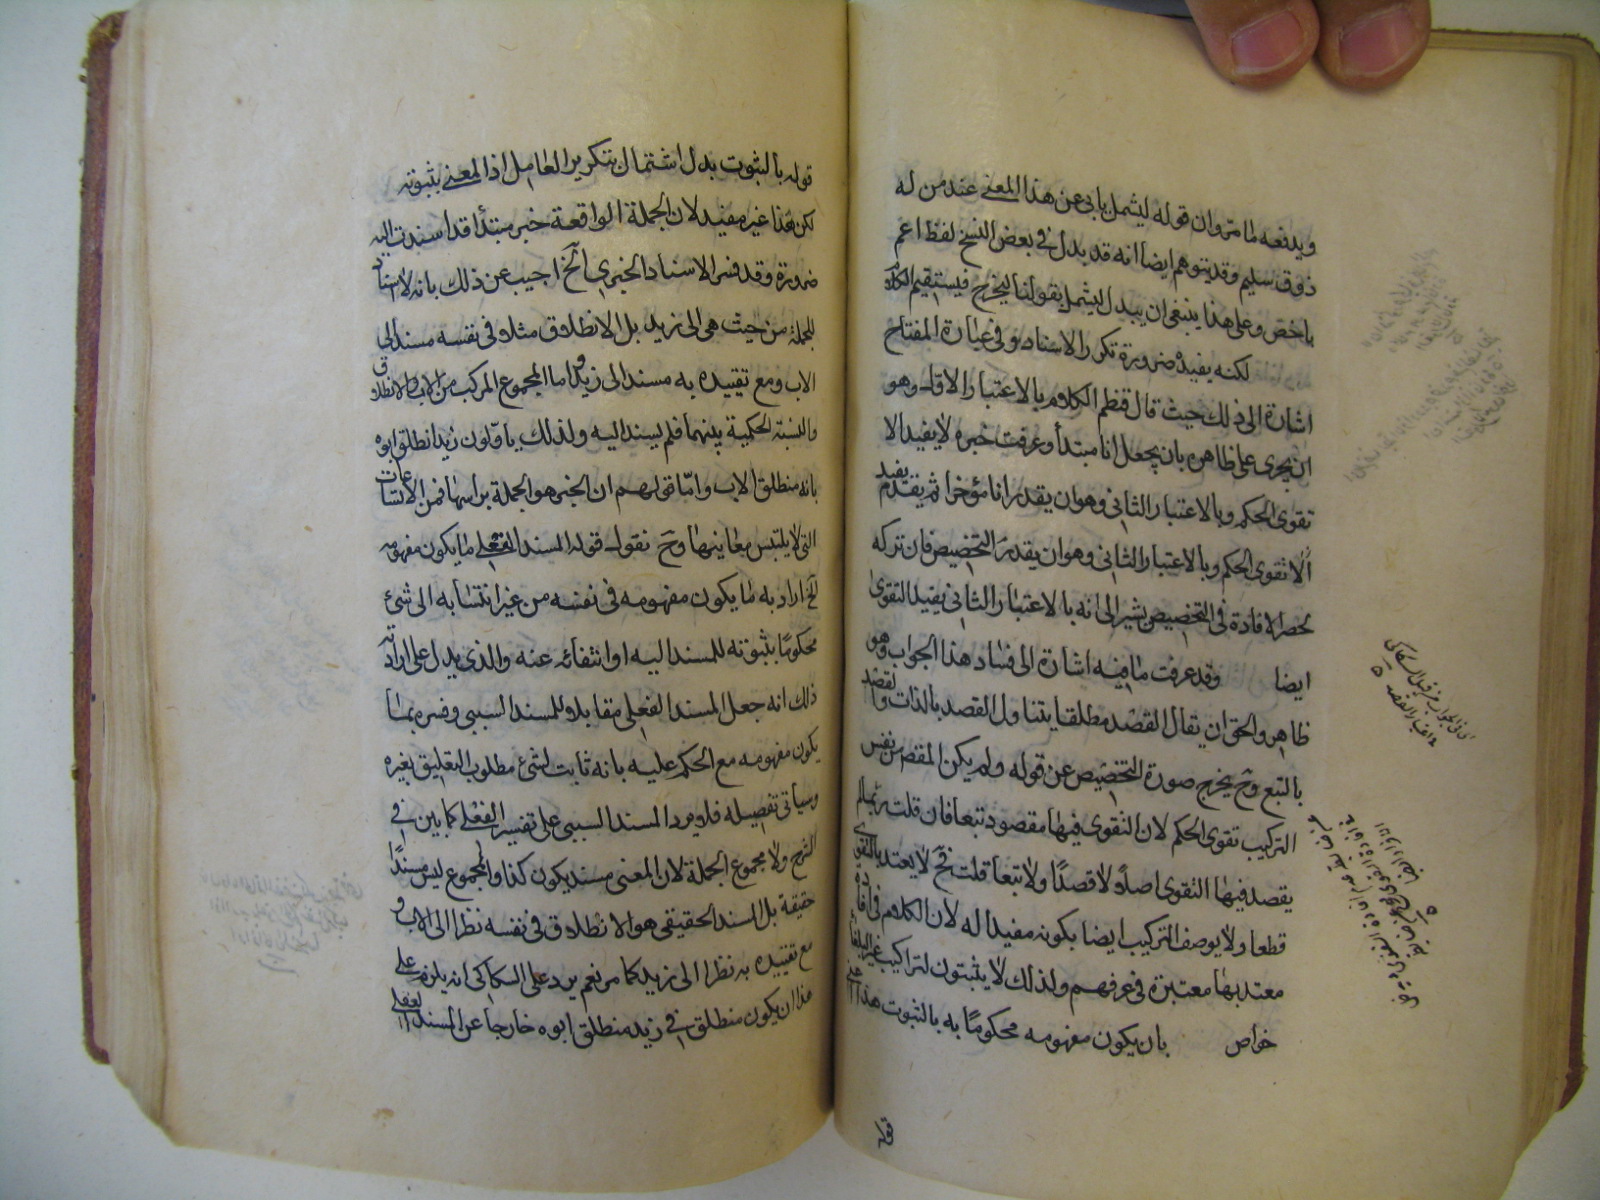 ويدفعه ما مر وان قوله ليشمل يابى عن هذا المعنى عند من له
ذوق سليم وقد يتوهم ايضا انه قد بدل في بعض النسخ لفظ اعم
باخص وعلى هذا ينبغي ان يبدل ليشمل بقولنا ليخرج فيستقيم الكلام
لكنه يفيد ضرورة تكرر الاسناد وفي عبارة المفتاح
اشارة الى ذلك حيث قال فنظم الكلام بالاعتبار الاول وهو
ان يجري على ظاهره بان يجعل انا مبتدأ وعرفت خبره لا يفيد الا
تقوى الحكم وبالاعتبار الثاني وهو ان يقدر انا مؤخرا ثم يقدم يفيد
الا تقوى الحكم وبالاعتبار الثاني وهو ان يقدر التخصيص فان تركه
حصر الافادة في التخصيص يشير الى انه بالاعتبار الثاني يفيد التقوى
ايضا وقد عرفت ما فيه اشارة الى فساد هذا الجواب وهو
ظاهر والحق ان يقال القصد مطلقا يتناول القصد بالذات والقصد
بالتبع وح يخرج صورة التخصيص عن قوله ولم يكن المقص من نفس
التركيب تقوى الحكم لان التقوى فيها مقصود تبعا فان قلت ربما لم
يقصد فيها التقوى اصلا ولا قصدا ولا تبعا قلت فح لا يعتد بالتقوى
قطعا ولا يوصف التركيب ايضا بكونه مفيدا له لان الكلام في افادة
معتد بها معتبرة في عرفهم ولذلك لا يثبتون لتراكيب غير البلغاء
خواص بان يكون مفهومه محكوما به بالثبوت هذا المعنى
قوله
قوله بالثبوت بدل اشتمال بتكرير العامل اذ المعنى بثبوته
لكن هذا غير مفيد لان الجملة الواقعة خبر مبتدأ قد اسندت اليه
ضرورة وقد فسر الاسناد الخبري الخ اجيب عن ذلك بانه لا اسناد
للجملة من حيث هي الى زيد بل الانطلاق مثلا في نفسه مسند الى
الاب ومع تقييده به مسند الى زيد واما المجموع المركب من الاب والانطلاق
والنسبة الحكمية بينهما فلم يسند اليه ولذلك ياولون زيد انطلق ابوه
بانه منطلق الاب واما قولهم ان الخبر هو الجملة براسها فمن الاتساعات
التي لا يلتبس معانيها وح نقول قوله المسند الفعلي ما يكون مفهومه
الخ اراد به ما يكون مفهومه في نفسه من غير انتسابه الى شئ
محكوما بثبوته للمسند اليه او انتفائه عنه والذي يدل على ارادته
ذلك انه جعل المسند الفعلي مقابلا للمسند السببي وفسره بما
يكون مفهومه مع الحكم عليه بانه ثابت لشئ مطلوب التعليق بغيره
وسياتي تفصيله فلا يرد المسند السببي على تفسير الفعلي كما بين في
الشرح ولا مجموع الجملة لان المعنى مسند يكون كذا والمجموع ليس مسندا
حقيقة بل المسند الحقيقي هو الانطلاق في نفسه نظرا الى الاب و
مع تقييده به نظرا الى زيد كما مر نعم يرد على السكاكي انه يلزم على
هذا ان يكون منطلق في زيد منطلق ابوه خارجا عن المسند الفعلي